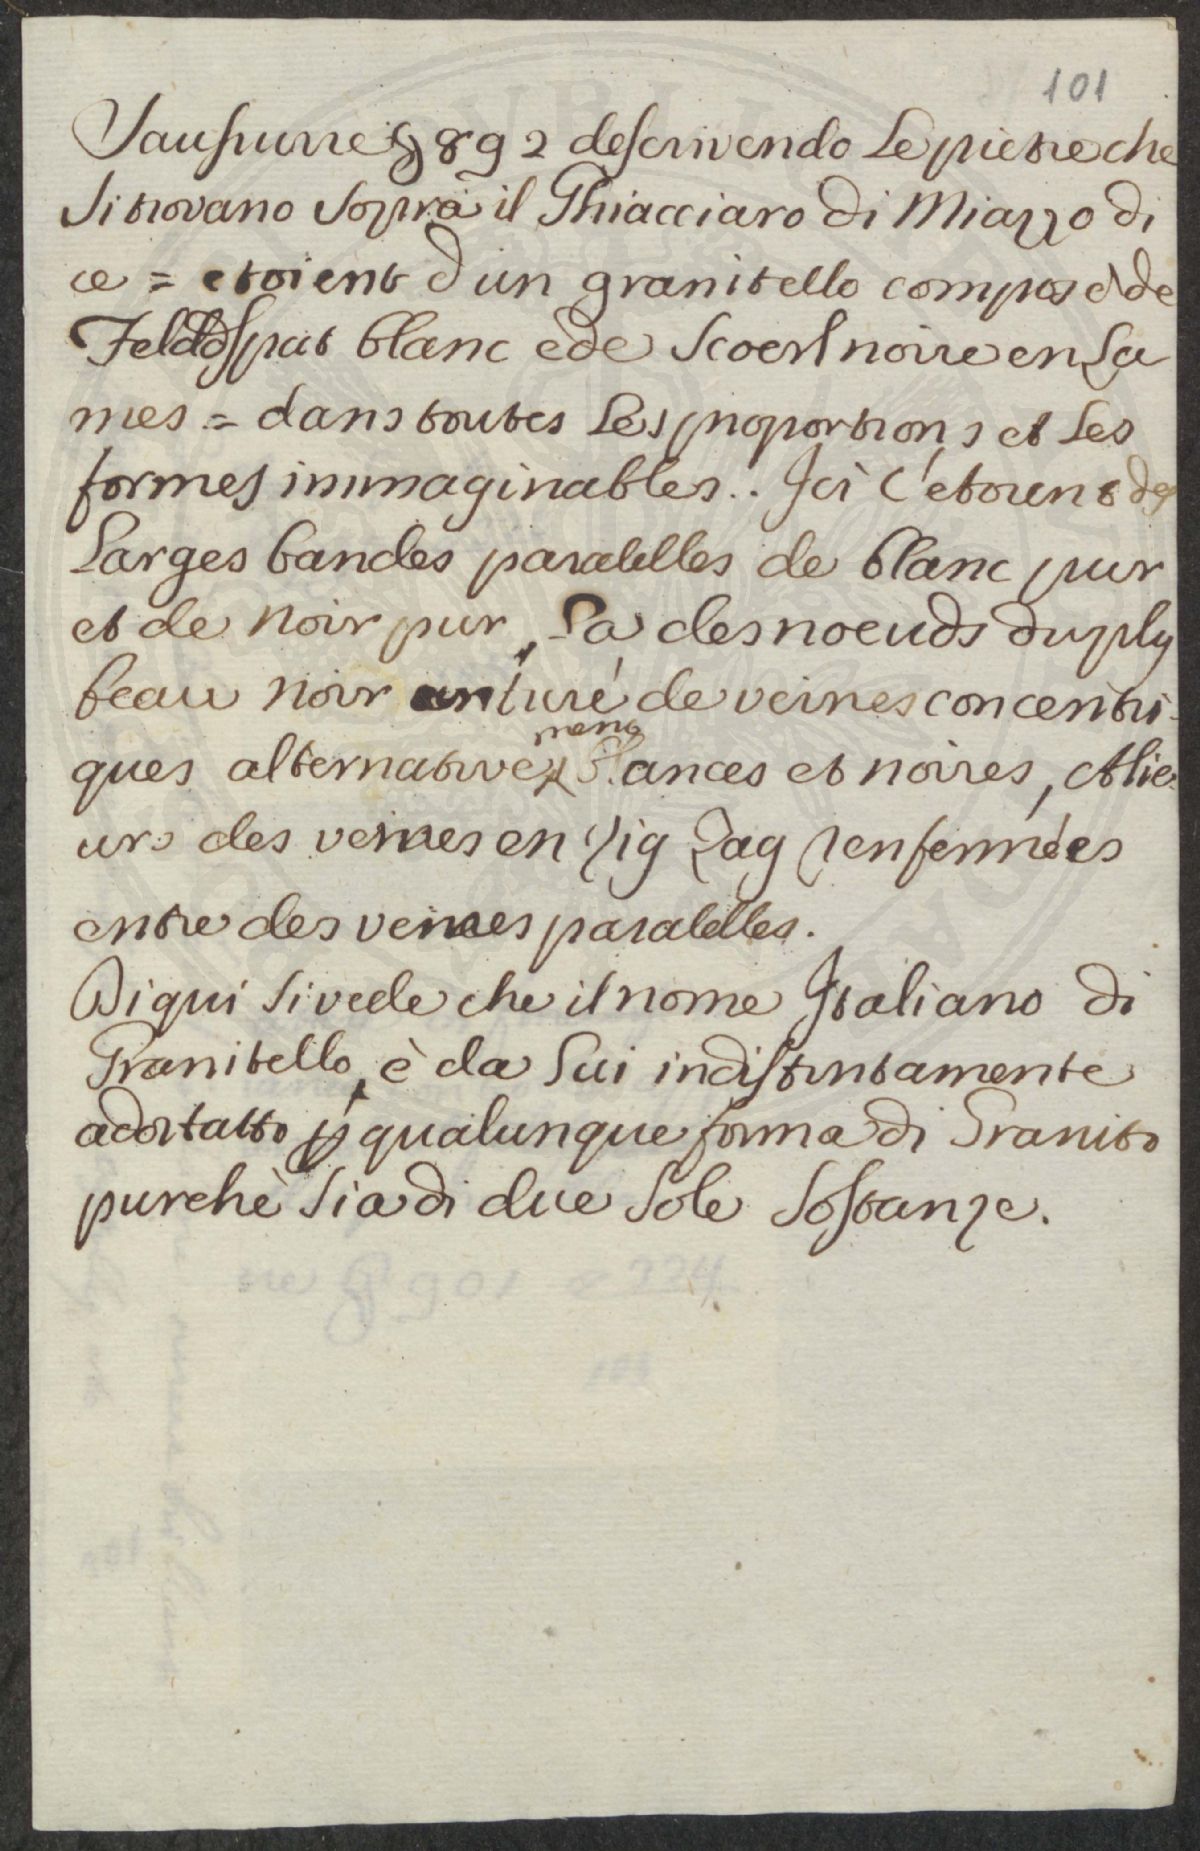 101
Saussurre § 892 descrivendo le pietre che
si trovano sopra il Ghiacciaro di Miazzo di
ce = etoient d'un granitello composé de
Feldspat blanc e de Scoerl noire en la
mes = dans toutes les proportions et les
formes immaginables.. Ici c'etoient des
larges bandes paralelles de blanc pur
et de noir pur, la des noeuds du plu
beau noir de veines concentri-
ques alternativement blances et noires, allie-
urs des veines en zig zag renfermées
entre des veines paralelles.
Di qui si vede che il nome Italiano di
Granitello, è da lui indistintamente
adottatto p qualunque forma di Granito
purchè sia di due sole sostanze.